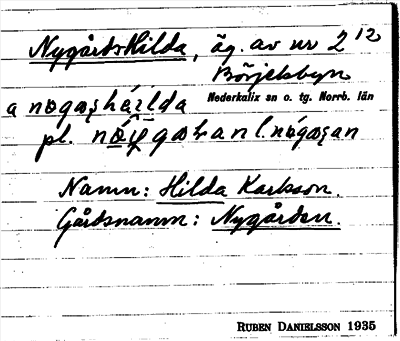 Nygårds Hilda, äg. av nr 2¹²
Börjelsbyn
Nederkalix sn o. tg. Norrb. län
a
pl.
Namn: Hilda Karlsson.
Gårdsnamn: Nygården.
RUBEN DANIELSSON 1935